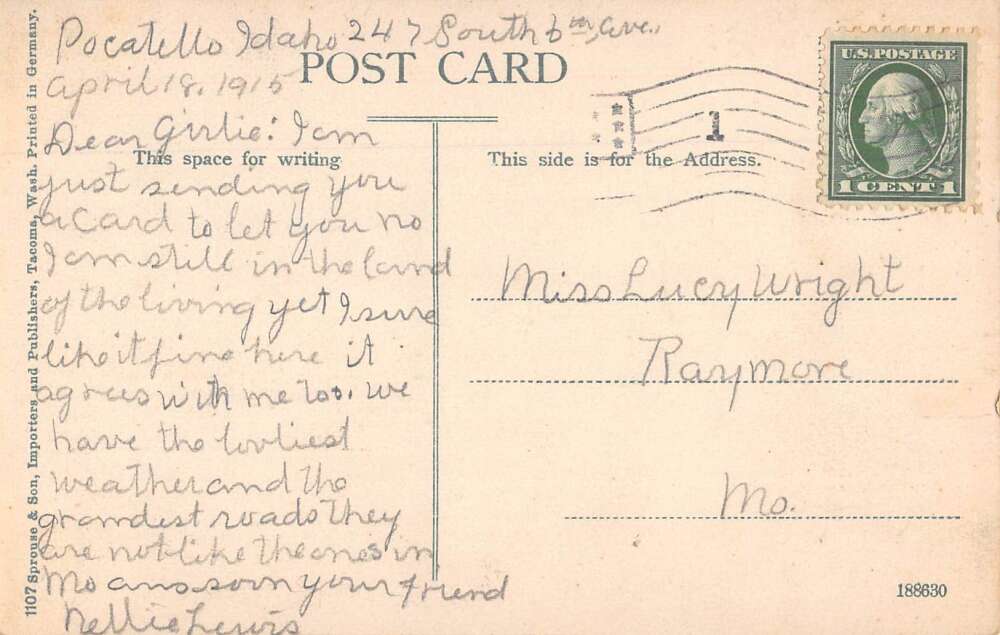 Pocatello Idaho 247 South 6th ave.,
april 18, 1915
POST CARD
Dear Girlie: I am
This space for writing
just sending you
a Card to let you no
I am still in the land
of the living yet I sure
like it fine here it
agrees with me too. we
have the lovliest
weather and the
grandest roads they
are not like the ones in
Mo ans soon your friend
Nellie Lewis
1107 Sprouse & Son, Importers and Publishers, Tacoma, Wash. Printed in Germany.
U.S. POSTAGE
1 CENT 1
1
This side is for the Address.
Miss Lucy Wright
Raymore
Mo.
188630